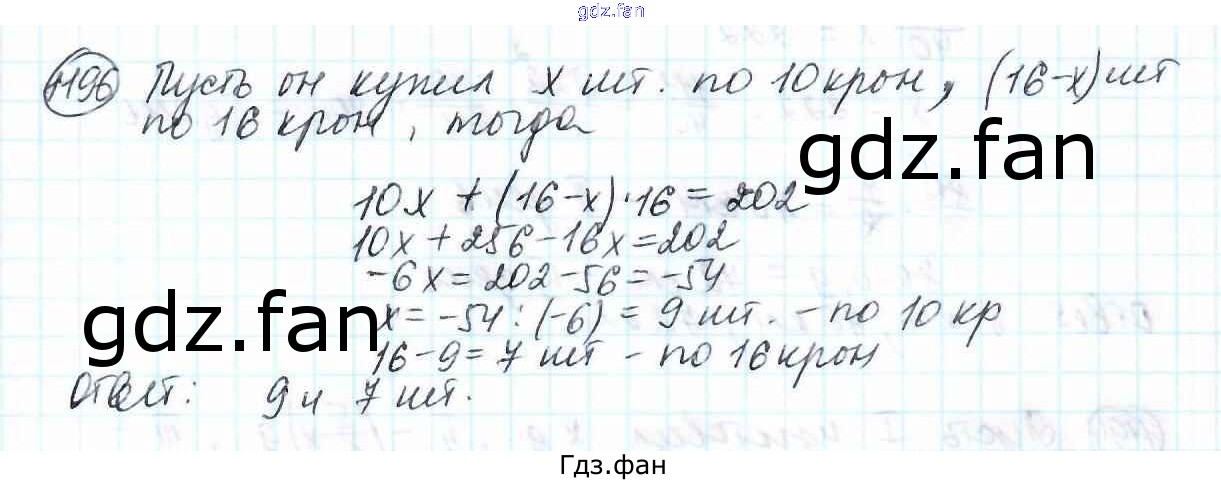 gdz.fan
1196 Пусть он купил x шт. по 10 крон, (16-x) шт
по 16 крон, тогда
gdz.fan
10x + (16-x)·16 = 202
10x + 256 - 16x = 202
-6x = 202 - 56 = -54
gdz.fan
x = -54 : (-6) = 9 шт. - по 10 кр
16 - 9 = 7 шт - по 16 крон
Ответ: 9 и 7 шт.
Гдз.фан